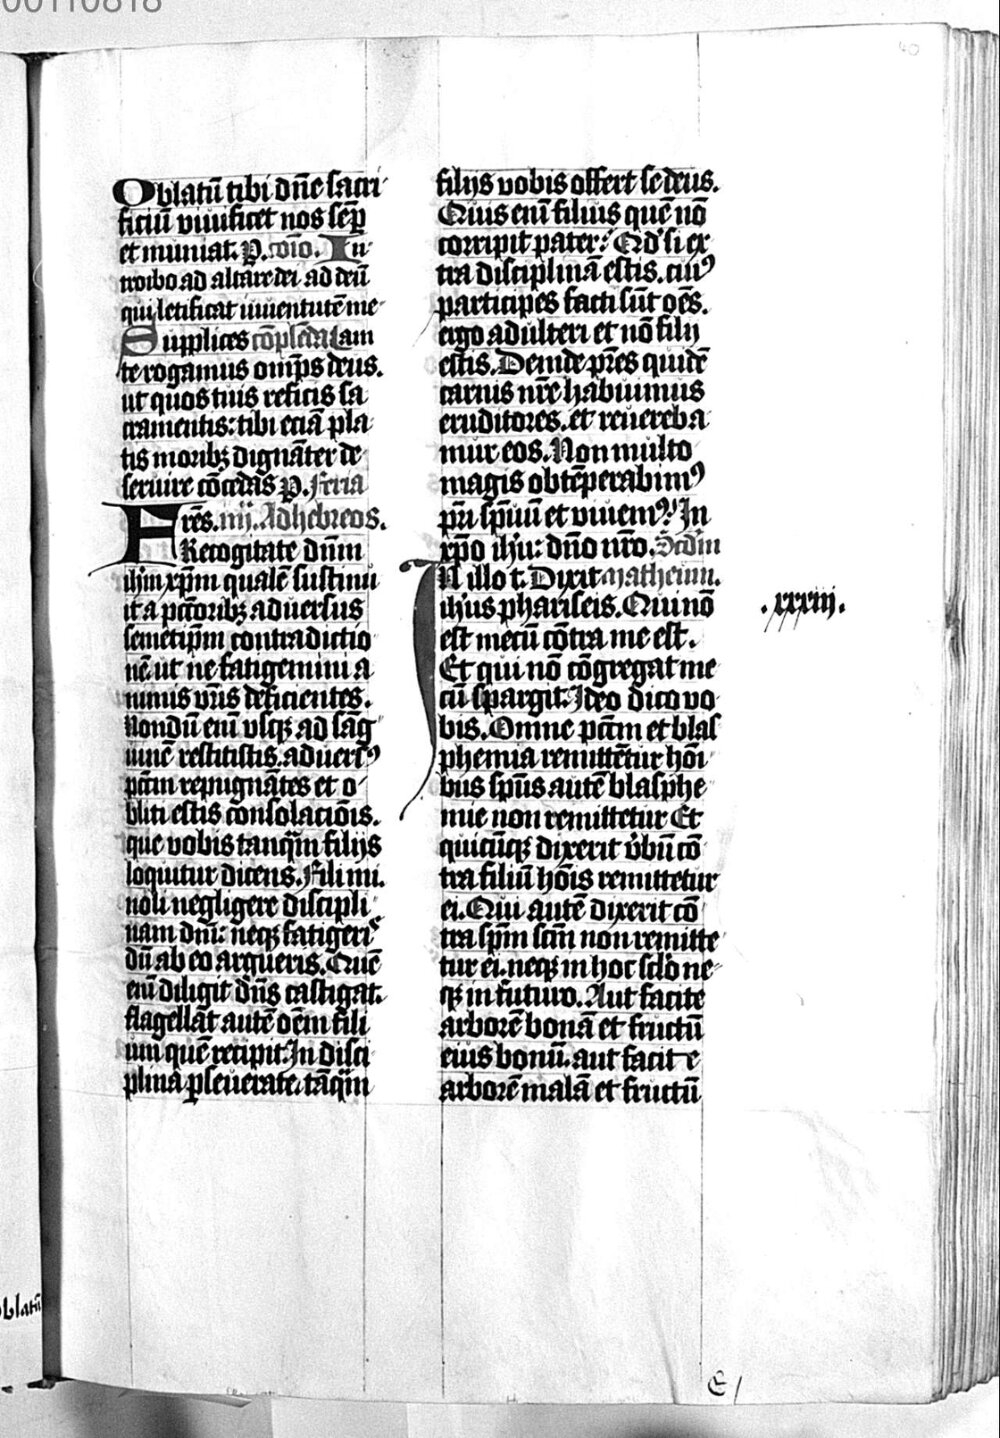 00110818
40
Oblatū tibi dñe sacri
ficiū viuificet nos semꝑ
et muniat. P. Cōio. In
troibo ad altare dei ad deū
qui letificat iuuentutē me
Supplices cōplēda Lam
te rogamus omps deus.
ut quos tuis reficis sa
cramentis: tibi eciā pla
tis moribꝫ dignāter de
seruire cōcedas P. Feria
Fres. iiij. Ad hebreos.
Recogitate dnm
ihm xpm qualē sustinu
it a pctoribꝫ aduersus
semetipm contradictio
nē. ut ne fatigemini a
nimis vris deficientes.
Nondū enī vsqꝫ ad sāg
uinē restitistis. aduersꝰ
pctm repugnātes et o
bliti estis consolacōis.
que vobis tanqm filijs
loquitur dicens. Fili mi.
noli negligere discipli
nam dni: neqꝫ fatigeris
dū ab eo argueris. Quē
enī diligit dns castigat.
flagellat autē oēm fili
um quē recipit. In disci
plina ꝑseuerate. tāqm
filijs vobis offert se deus.
Quis enī filius quē nō
corripit pater: Qd si ex
tra disciplinā estis. cuiꝰ
participes facti sūt oēs.
ergo adulteri et nō filij
estis. Deinde pres quidē
carnis nre habuimus
eruditores. et reuereba
mur eos. Non multo
magis obtēperabimꝰ
pri spiritū et viuemꝰ. In
xpo ihu: dno nro. Scdm
IN illo t. Dixit matheum.
ihus phariseis. Qui nō
est mecū cōtra me est.
Et qui nō cōgregat me
cū spargit. Ideo dico vo
bis. Omne pctm et blas
phemia remittētur hōi
bus spūs autē blasphe
mie non remittetur Et
quicūqꝫ dixerit vbū cō
tra filiū hōis remittetur
ei. Qui autē dixerit cō
tra spm scm non remitte
tur ei. neqꝫ in hoc sclo ne
qꝫ in futuro. Aut facite
arborē bonā et fructū
eius bonū. aut facite
arborē malā et fructū
.xxxiij.
oblatū